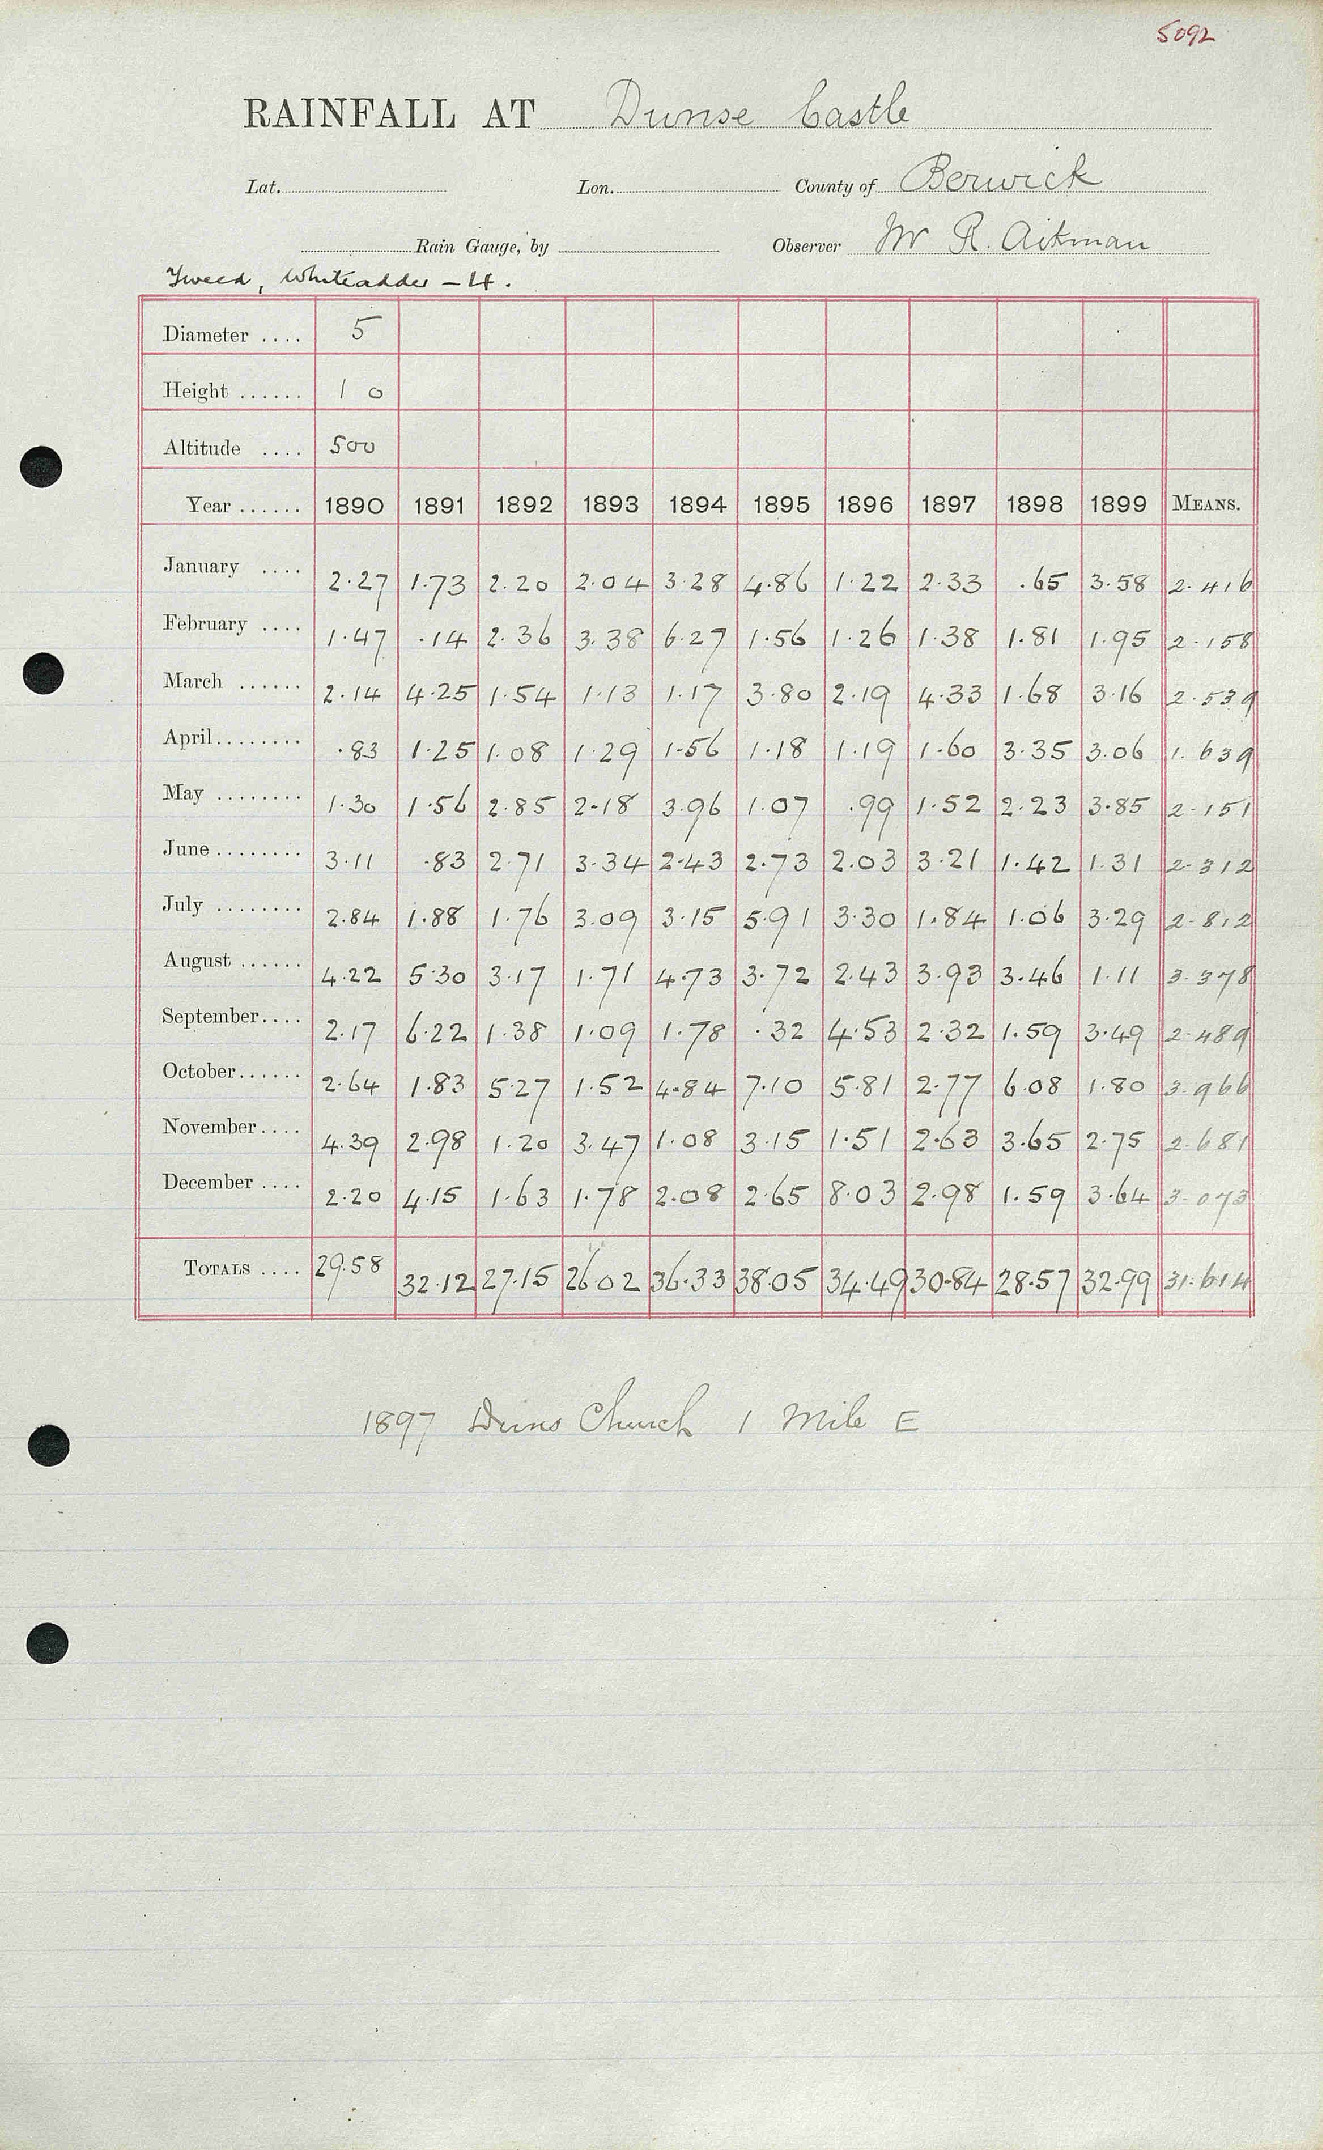 5092
RAINFALL AT Dunse Castle
Lat. Lon. County of Berwick
Rain Gauge, by Observer Mr R. Aitman
Tweed, Whiteadder - 4.
Diameter .... 5
Height ...... 1 0
Altitude .... 500
Year ...... 1890 1891 1892 1893 1894 1895 1896 1897 1898 1899 MEANS.
January .... 2.27 1.73 2.20 2.04 3.28 4.86 1.22 2.33 .65 3.58 2.416
February .... 1.47 .14 2.36 3.38 6.27 1.56 1.26 1.38 1.81 1.95 2.158
March ...... 2.14 4.25 1.54 1.13 1.17 3.80 2.19 4.33 1.68 3.16 2.539
April........ .83 1.25 1.08 1.29 1.56 1.18 1.19 1.60 3.35 3.06 1.639
May ........ 1.30 1.56 2.85 2.18 3.96 1.07 .99 1.52 2.23 3.85 2.151
June........ 3.11 .83 2.71 3.34 2.43 2.73 2.03 3.21 1.42 1.31 2.312
July ........ 2.84 1.88 1.76 3.09 3.15 5.91 3.30 1.84 1.06 3.29 2.812
August ...... 4.22 5.30 3.17 1.71 4.73 3.72 2.43 3.93 3.46 1.11 3.378
September.... 2.17 6.22 1.38 1.09 1.78 .32 4.53 2.32 1.59 3.49 2.489
October...... 2.64 1.83 5.27 1.52 4.84 7.10 5.81 2.77 6.08 1.80 3.966
November.... 4.39 2.98 1.20 3.47 1.08 3.15 1.51 2.63 3.65 2.75 2.681
December .... 2.20 4.15 1.63 1.78 2.08 2.65 8.03 2.98 1.59 3.64 3.073
TOTALS .... 29.58 32.12 27.15 26 02 36.33 38.05 34.49 30.84 28.57 32.99 31.614
1897 Duns Church 1 Mile E